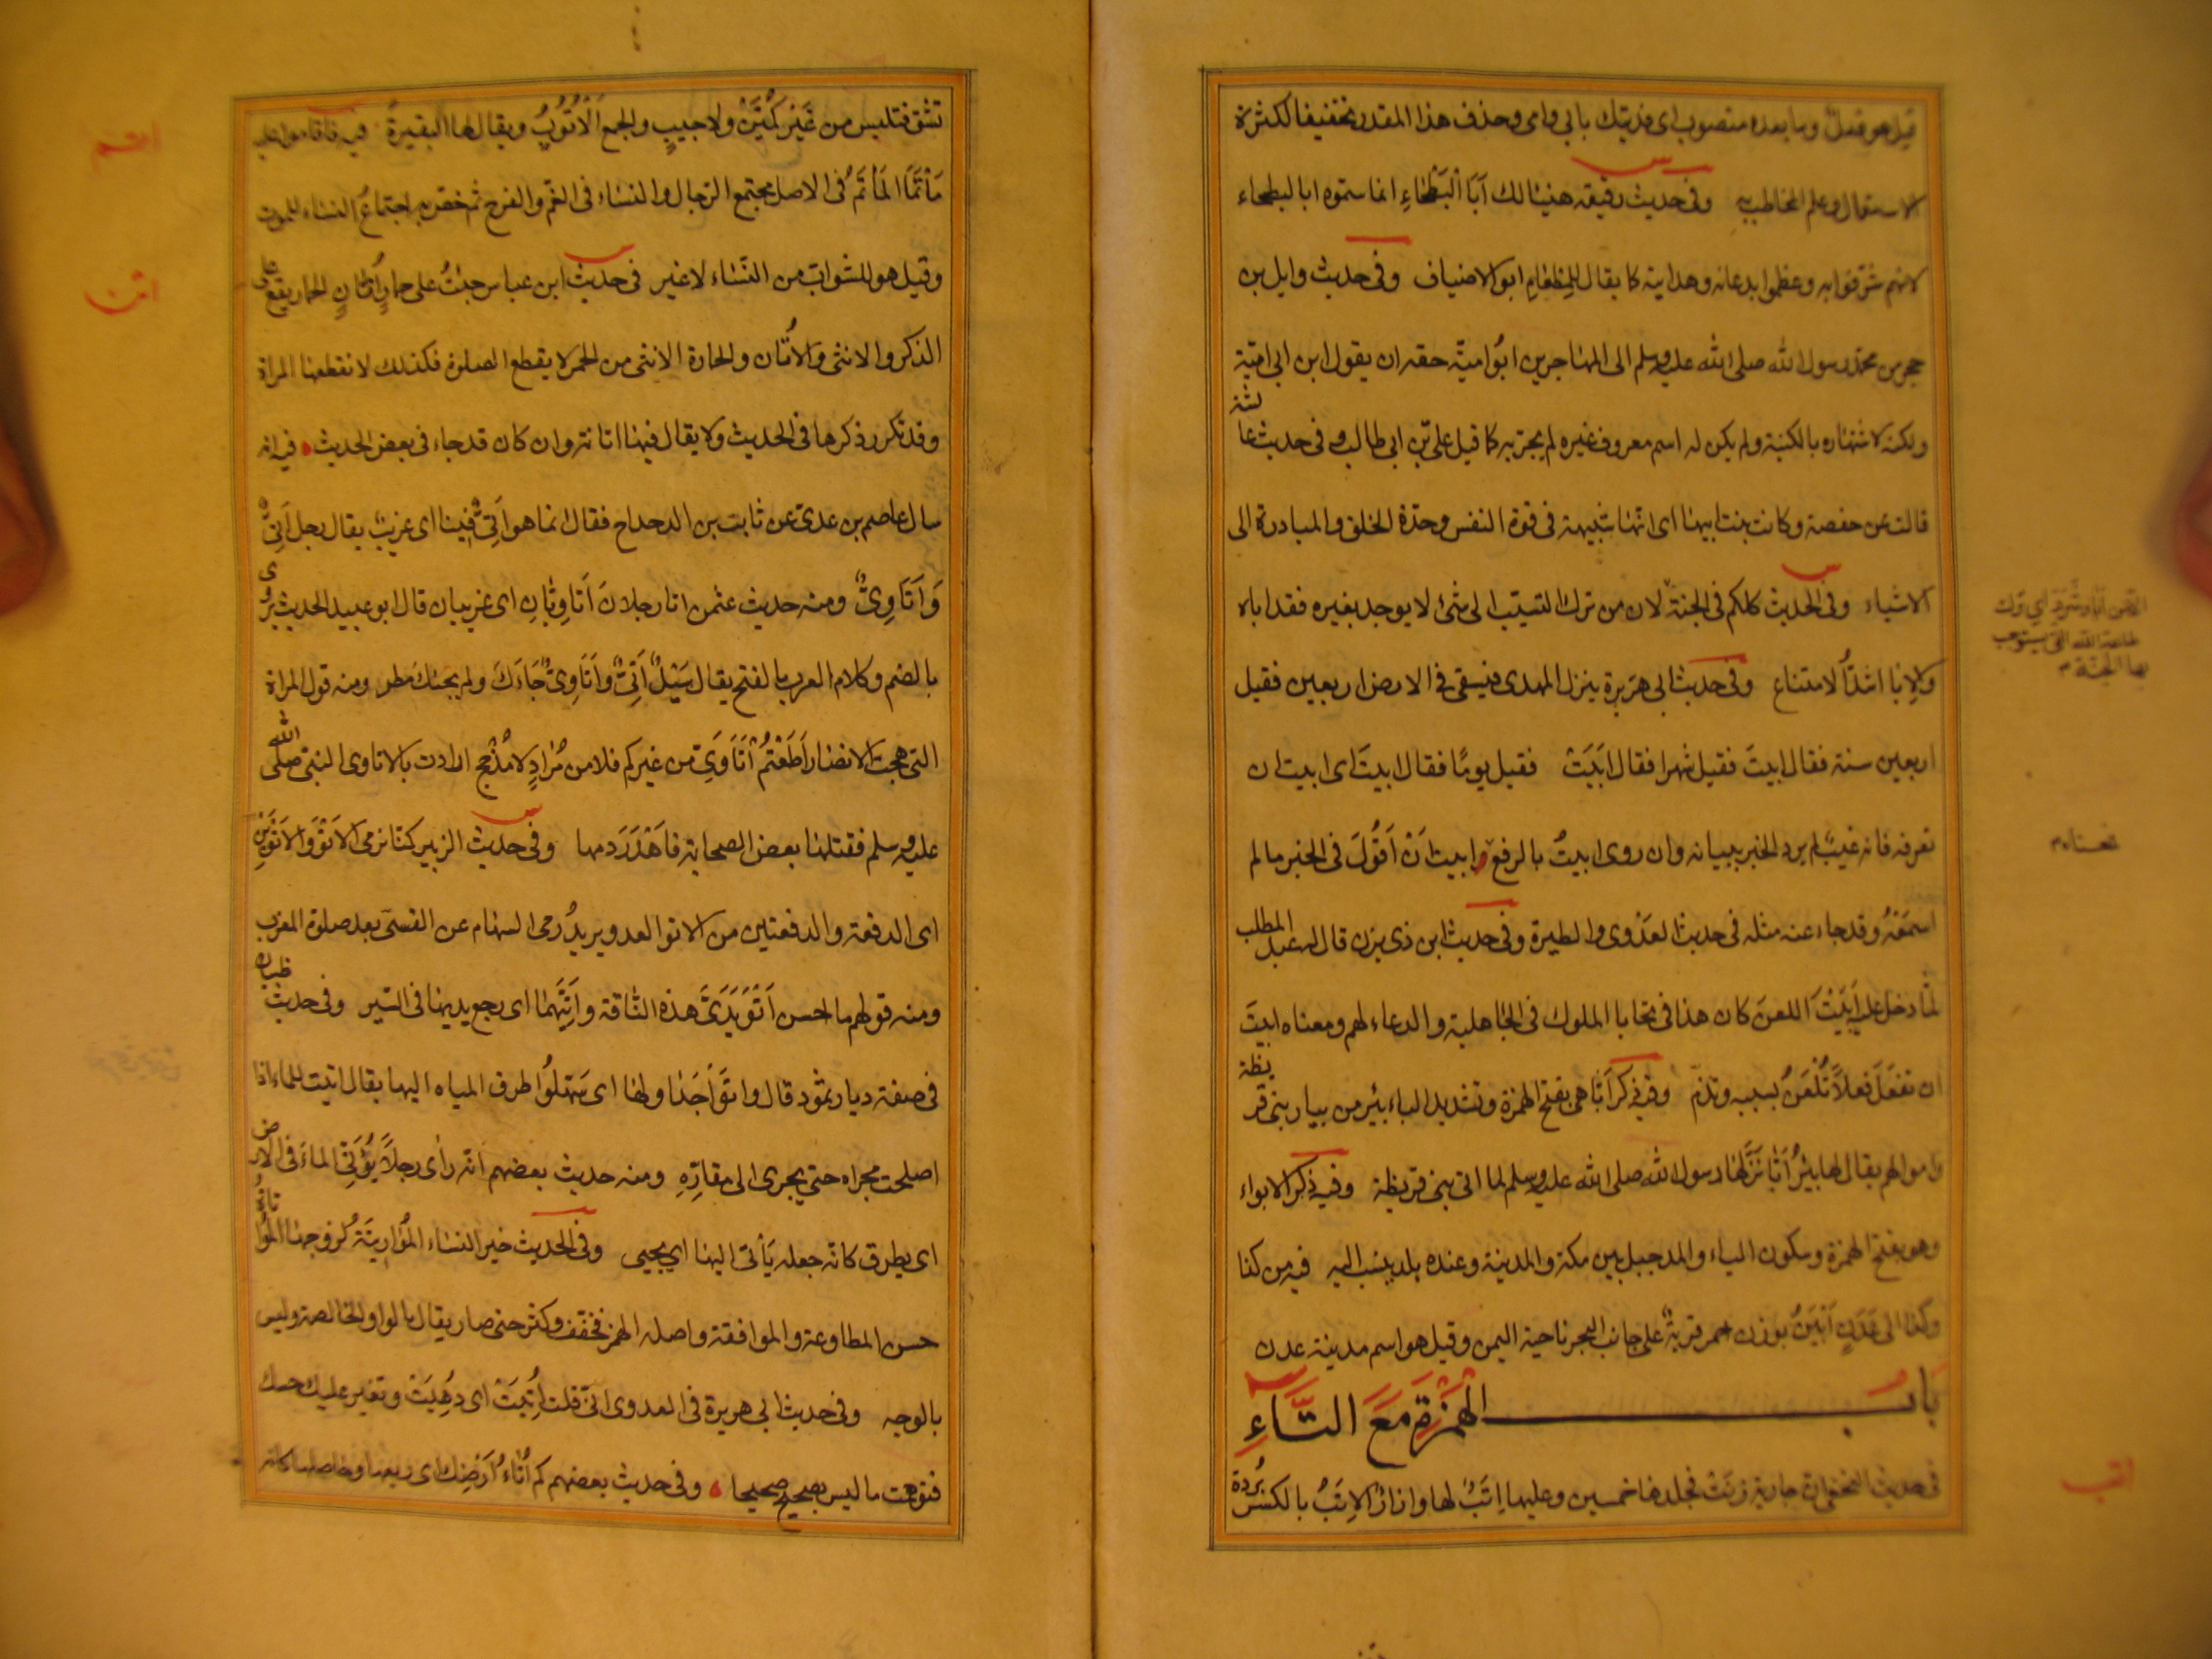 قيل هو فعل وما بعده منصوب اى فديتك بابى وامى وحذف هذا المقدر تخفيفا لكثرة
الاستعمال وعلم المخاطب به وفى حديث رقيقه هنيئا لك أَبَا الْبَطْحَاءِ انما سموه ابا لبطحاء
لانهم شرفوا به وعظموا بدعائه وهدايته كما يقال للمِطْعَامِ ابو الاضياف وفى حديث وايل بن
حجر من محمد رسول الله صلى الله عليه وسلم الى المهاجر بن ابُو امية حقه ان يقول ابن ابى امية
ولكنه لاشتهاره بالكنية ولم يكن له اسم معروف غيره لم يجر به كما قيل على بن ابى طالب وفى حديث عائشة
قالت عن حفصة وكانت بنت ابيها اى انها شبيهة به فى قوة النفس وحدة الخلق والمبادرة الى
الاشياء وفى الحديث كلكم فى الجنة لان من ترك التسبب الى شئ لا يوجد بغيره فقد اباه
والإبا اشدُّ الامتناع وفى حديث ابى هريرة ينزل المهدى فيبقى فى الارض اربعين فقيل
اربعين سنة فقال ابيتَ فقيل شهرا فقال ابَيْتَ فقيل يومًا فقال ابيتَ اى ابيت ان
تعرفه فانه غيب لم يرد الخبر ببيانه وان روى ابيتُ بالرفع فمعناه ابيت اَنْ اَقُولَ فى الخبر مالم
اسمَعْهُ وقد جاء عنه مثله فى حديث العَدْوى والطيرة وفى حديث ابن ذى يزن قال له عبد المطلب
لمّا دخل عليه أَبَيْتَ اللعنَ كان هذا فى تحايا الملوك فى الجاهلية والدعاء لهم ومعناه ابيتَ
ان تفعَلَ فعلًا تُلْعَنُ بسببه وتذم وفيه ذكر اَبّا هى بفتح الهمزة وتشديد الباء بئر من بيار بنى قريظة
وامو الهم يقال لها بِئرُ اَبّا نَزَلها رسول الله صلى الله عليه وسلم لما اتى بنى قريظة وفيه ذكر الابواء
وهو بفتح الهمزة وسكون الباء والمد جبل بين مكة والمدينة وعنده بلد ينسب اليه فيه من كذا
وكذا الى عَدَنِ اَبْيَنَ بوزن احمر قرية على جانب البحر ناحية اليمن وقيل هو اسم مدينة عدن
بَابُ الْهَمْزَةِ مَعَ التَّاءِ
فى حديث النخعى ان جارية زنَتْ فجلدها خمسين وعليها اِتبٌ لها وازار الاِتبُ بالكسر بُرْدة
الابى اشد
معناه
اتب
تشق فتلبس من غَيْرِ كُمَّيْنِ ولا جيبٍ والجمع اَلْاُتُوبُ ويقال لها البقيرة فيه فاقاموا عليه
مَأْتَمًا المَأْتَمُ فى الاصل مجتمع الرجال والنساء فى الغم والفرح ثم خص به اجتماع النساء للموت
وقيل هو للشواب من النساء لاغير فى حديث ابن عباس جئتُ على حمارٍ أَتَانٍ الحمار يقع على
الذكر والانثى والأتان والحمارة الانثى من الحمر لا يقطع الصلوة فكذلك لا تقطعها المراة
وقد تكرر ذكرها فى الحديث ولا يقال فيها اتانة وان كان قد جاء فى بعض الحديث فيه انه
سال عاصم بن عدى عن ثابت بن الدحداح فقال انما هو اَتِىٌّ فينا اى غريب يقال رجل اَتِىٌّ
وَاَتَاوِىٌّ ومنه حديث عثمن انا رجلان اَتَاوِيَّانِ اى غريبان قال ابو عبيد الحديث يروى
بالضم وكلام العرب بالفتح يقال سَيْلٌ اَتِىٌّ وَاَتَاوِىٌّ جَاءَكَ ولم يجئك مطره ومنه قول المراة
التى هجت الانصار اَطَعْتُمْ اَتَاوِىَّ من غيركم فلا من مُرَادٍ ولا مُذْحج ارادت بالاتاوى النبى صلى الله
عليه وسلم فقتلها بعض الصحابة فاَهْدَرَ دمها وفى حديث الزبير كنا نرمى الاَتْوَ والاَتْوَيْنِ
اى الدفعة والدفعتين من الاتو العدو يريدُ رمى السهام عن القسىّ بعد صلوة المغرب
ومنه قولهم ما احسن اَتْوَ يَدَىْ هذه الناقة واَتْيَهُمَا اى رجع يديها فى السير وفى حديث ظبيان
فى صفة ديار ثمود قال واتَّوْا جَدَاولها اى سَهّلُوا طرق المياه اليها يقال اتيت للماء اذا
اصلحت مجراه حتى يجرى الى مقارِّهِ ومنه حديث بعضهم انه راى رجلًا يُؤَتِّى الماءَ فى الارض
اى يطرق كانه جعله يَأتى اليها اى يجيى وفى الحديث خير النساء المُؤَاتِيَةُ لزوجها المُؤَاتاةُ
حسن المطاوعة والموافقة واصله الهمز فخفف وكثر حتى صار يقال بالواو الخالصة وليس
بالوجه وفى حديث ابى هريرة فى العدوى انّى قلت اُتِيتَ اى دُهِيتَ وتغير عليك حسك
فتوهمت ما ليس بصحيح صحيحا وفى حديث بعضهم كم اَتَاءُ اَرْضِك اى ريعها وحاصلها كانه
اتم
اتن